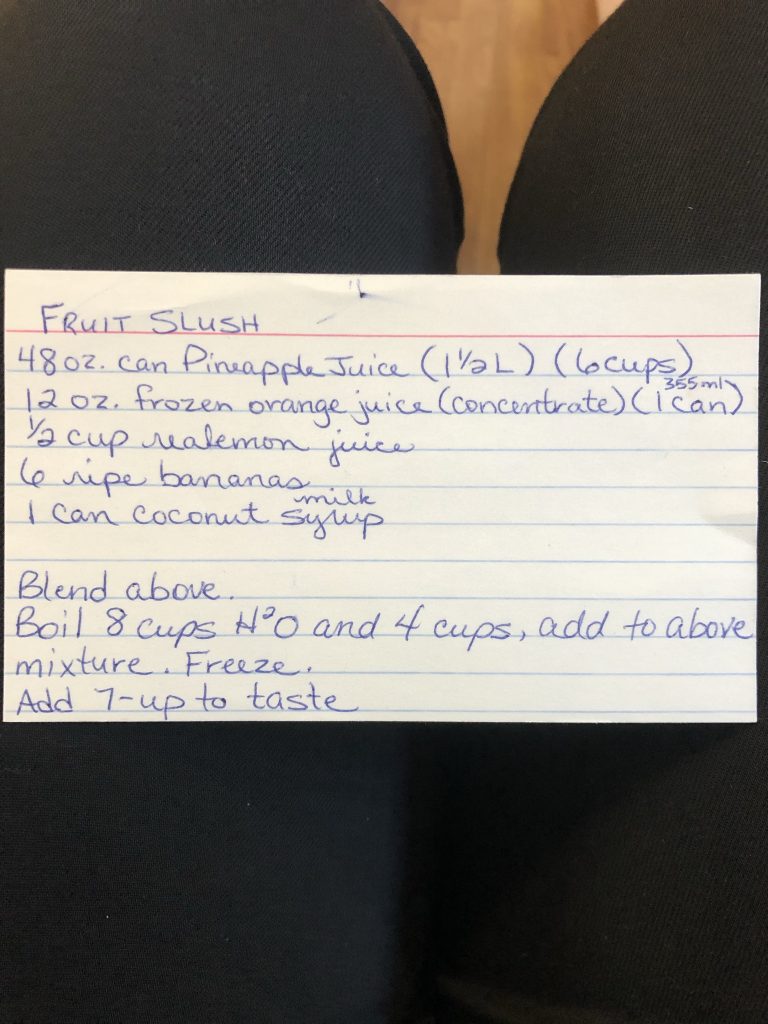 FRUIT SLUSH
48 oz. can Pineapple Juice (1½ L) (6 cups)
12 oz. frozen orange juice (concentrate) (1 can) 355 ml
½ cup realemon juice
6 ripe bananas
1 can coconut syrup milk
Blend above.
Boil 8 cups H²O and 4 cups, add to above
mixture. Freeze.
Add 7-up to taste